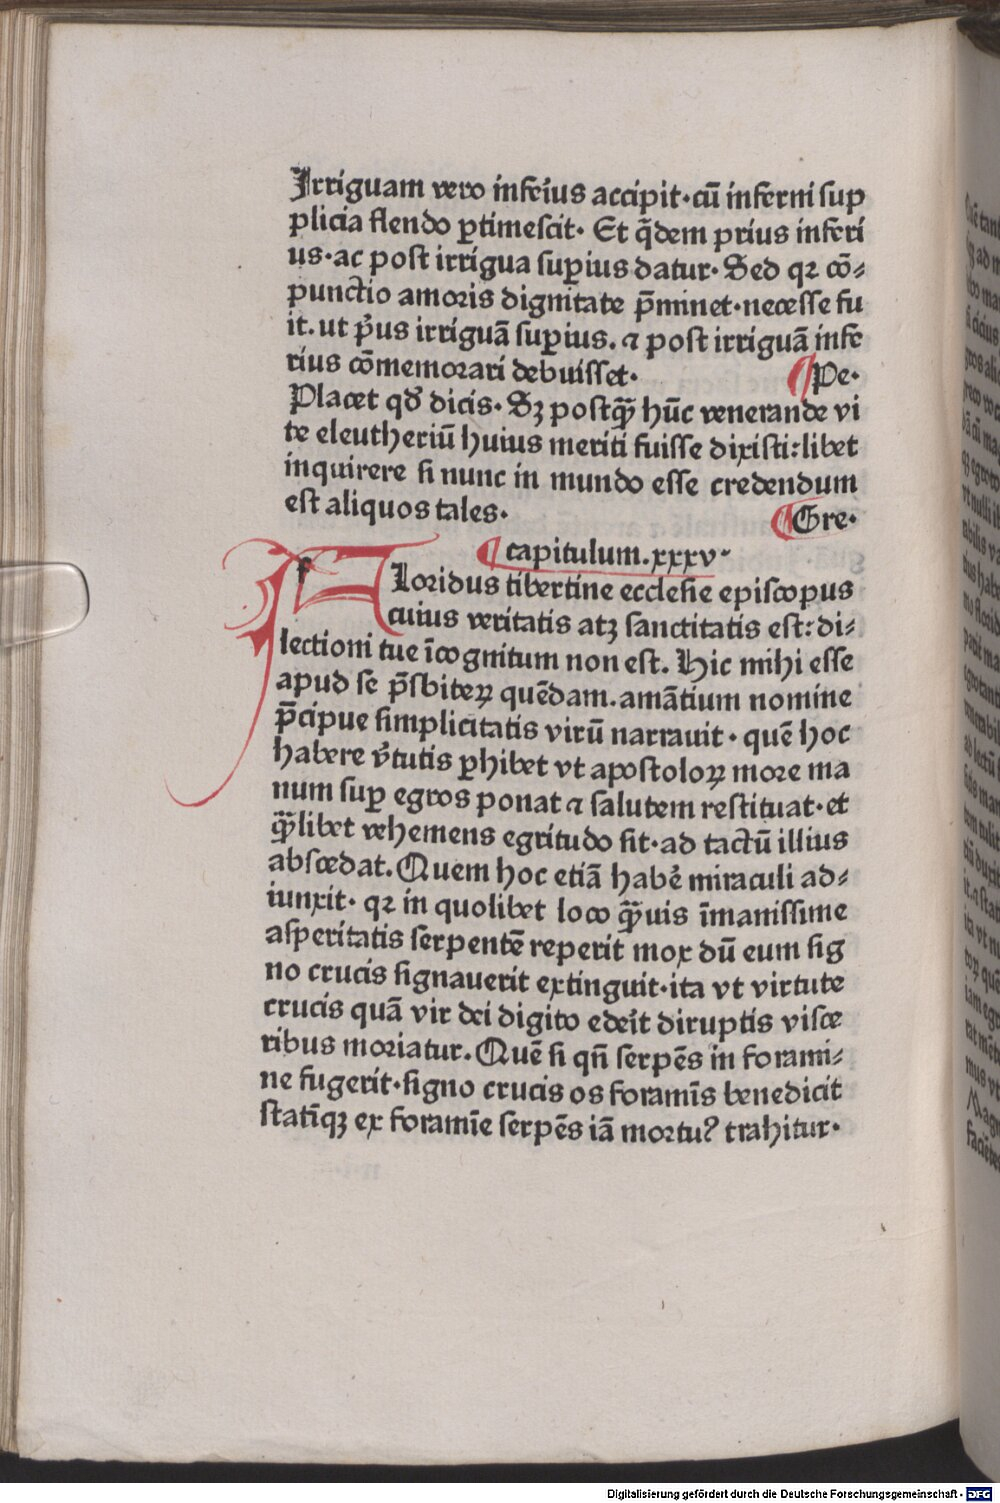 Irriguam vero inferius accipit·cū inferni sup
plicia flendo ꝑtimescit· Et q̄dem prius inferi
us·ac post irrigua suꝑius datur· Sed qꝛ cō⸗
punctio amoris dignitate p̄minet·necesse fu
it.ut pⁱus irriguā suꝑius.⁊ post irriguā infe
rius cōmemorari debuisset·
¶Pe·
Placet qđ dicis· Sꝫ postqᷓꝫ hūc venerande vi
te eleutheriū huius meriti fuisse dixisti:libet
inquirere si nunc in mundo esse credendum
est aliquos tales·
¶Gre·
¶capitulum.xxxv·
FLoridus tibertine ecclesie episcopus
cuius veritatis atꝫ sanctitatis est:di⸗
lectioni tue īcognitum non est. Hic mihi esse
apud se p̄sbiteꝝ quēdam.amātium nomine
p̄cipue simplicitatis virū narrauit·quē hoc
habere v̓tutis ꝑhibet vt apostoloꝝ more ma
num suꝑ egros ponat ⁊ salutem restituat·et
qᷓꝫlibet vehemens egritudo sit·ad tactū illius
abscedat.Quem hoc etiā habe᷑ miraculi ad⸗
iunxit· qꝛ in quolibet loco qᷓꝫuis īmanissime
asperitatis serpentē reperit mox dū eum sig
no crucis signauerit extinguit·ita vt virtute
crucis quā vir dei digito ederit diruptis visce
ribus moriatur.Quē si qn̄ serpēs in forami⸗
ne fugerit·signo crucis os foramīs benedicit
statīqꝫ ex foramīe serpēs iā mortuꝰ trahitur·
Digitalisierung gefördert durch die Deutsche Forschungsgemeinschaft · DFG